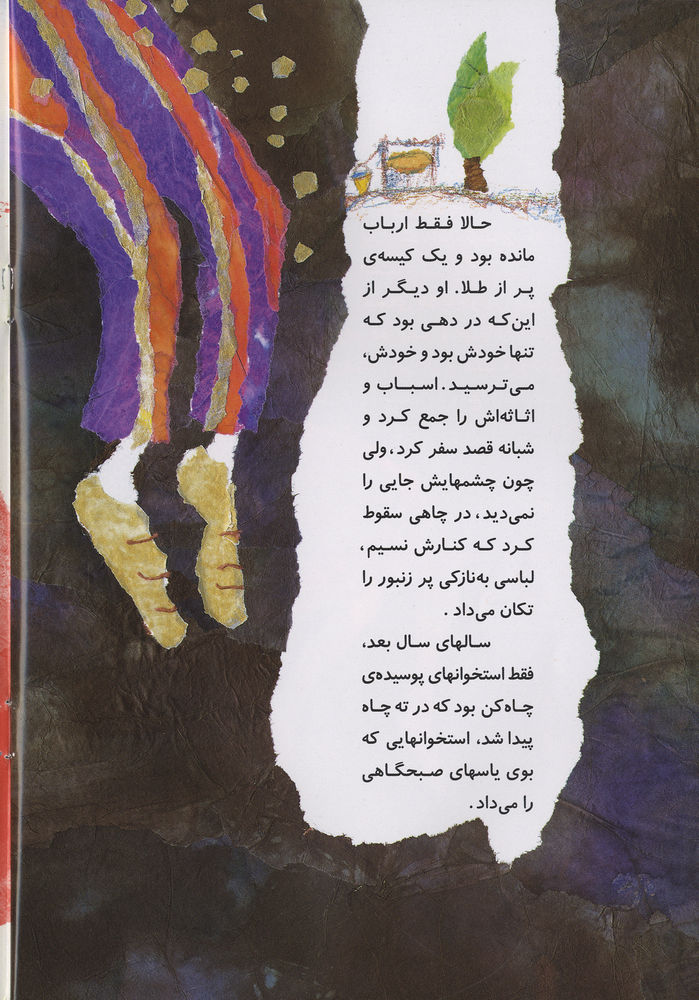 حالا فقط ارباب
مانده بود و یک کیسه‌ی
پر از طلا. او دیگر از
این‌که در دهی بود که
تنها خودش بود و خودش،
می‌ترسید. اسباب و
اثاثه‌اش را جمع کرد و
شبانه قصد سفر کرد، ولی
چون چشمهایش جایی را
نمی‌دید، در چاهی سقوط
کرد که کنارش نسیم،
لباسی به‌نازکی پر زنبور را
تکان می‌داد.
سالهای سال بعد،
فقط استخوانهای پوسیده‌ی
چاه‌کن بود که در ته چاه
پیدا شد، استخوانهایی که
بوی یاسهای صبحگاهی
را می‌داد.